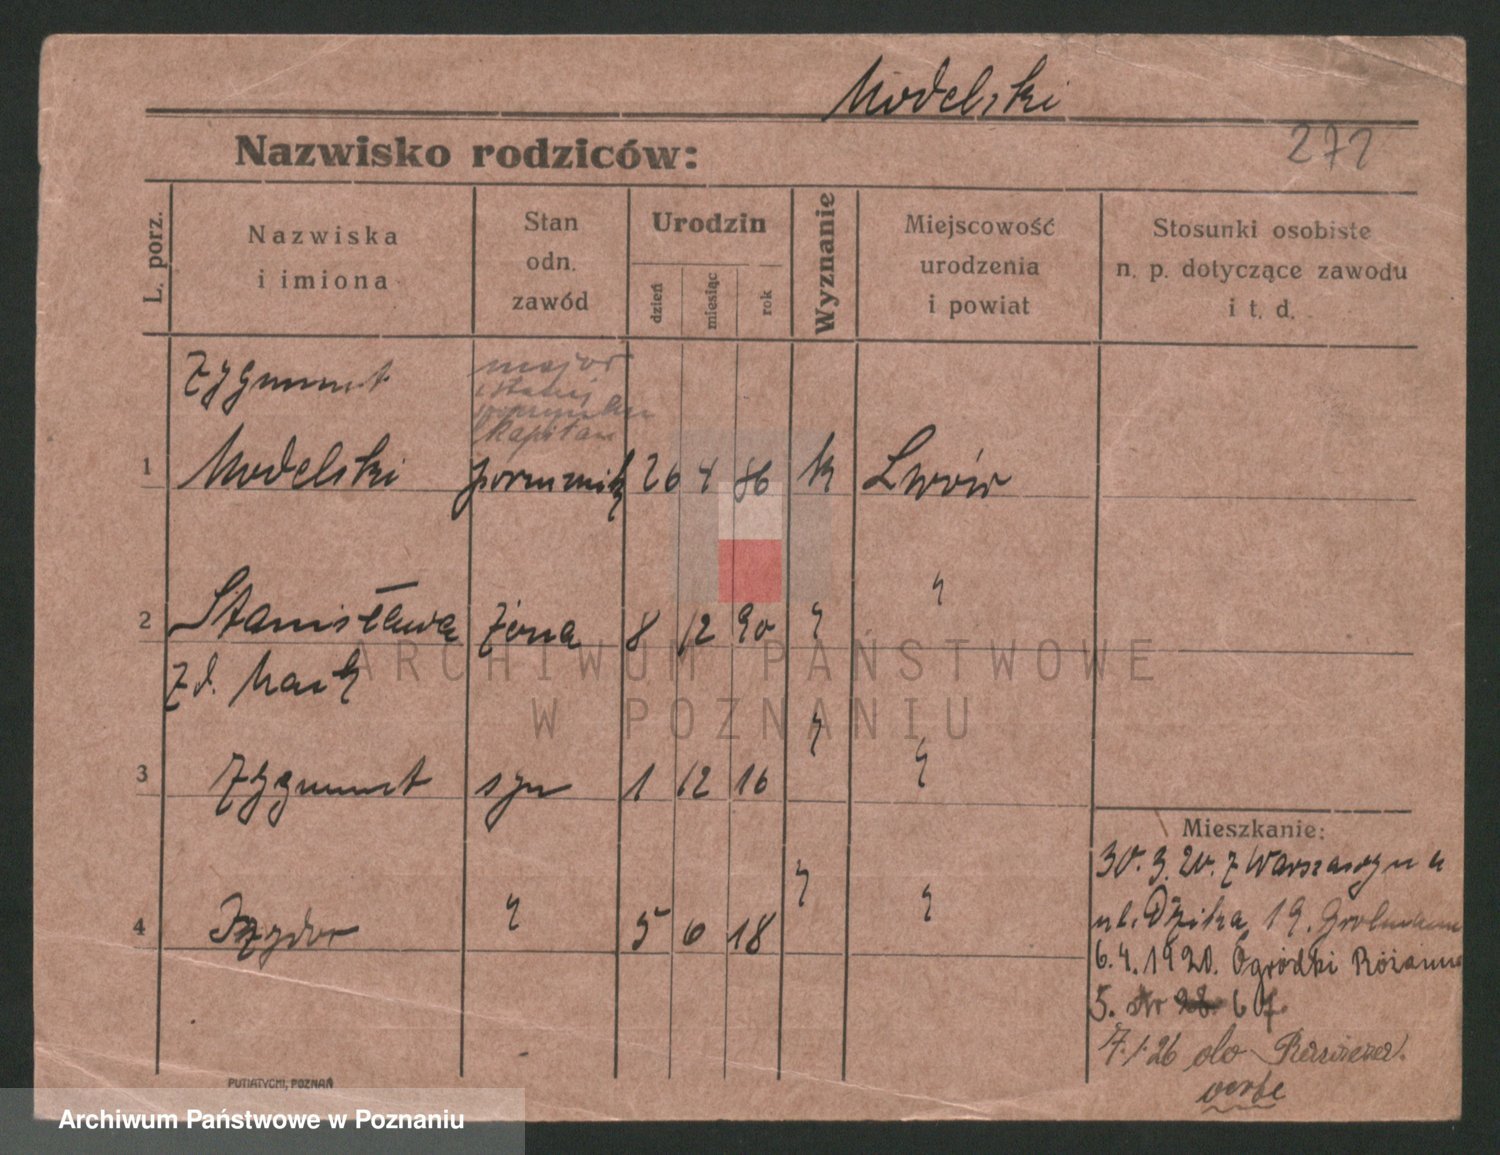 Modelski
272
Nazwisko rodziców:
L. porz.
Nazwiska
i imiona
Stan
odn.
zawód
Urodzin
dzień
miesiąc
rok
Wyznanie
Miejscowość
urodzenia
i powiat
Stosunki osobiste
n. p. dotyczące zawodu
i t. d.
Zygmunt
major
kapitan
1 Modelski porucznik 26 4 86 k Lwów
2 Stanisława żona 8 12 90 "
zd.
3 Zygmunt syn 1 12 16 " "
4 Izydor " 5 6 18 " "
Mieszkanie:
30. 3. 20. z Warszawy
ul. Dzika 19.
6. 4. 1920. Ogródki
5. 28. 67.
7. 1. 26 do
verte
ARCHIWUM PAŃSTWOWE
W POZNANIU
PUTIATYCKI, POZNAŃ
Archiwum Państwowe w Poznaniu